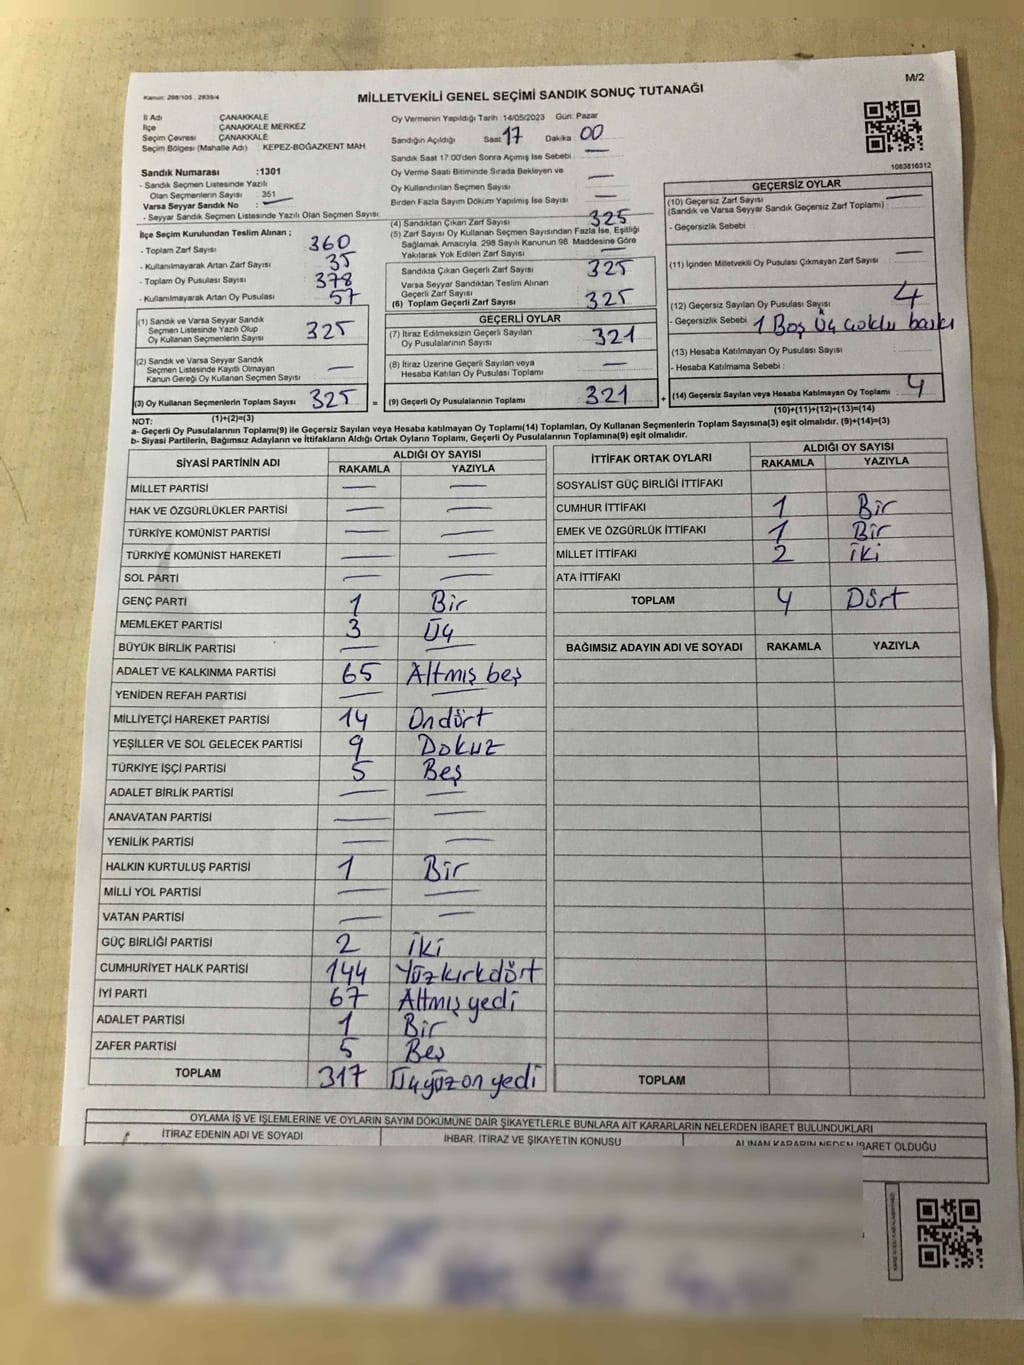 M/2
Kanun: 298/105 , 2839/4
MİLLETVEKİLİ GENEL SEÇİMİ SANDIK SONUÇ TUTANAĞI
İl Adı ÇANAKKALE
İlçe ÇANAKKALE MERKEZ
Seçim Çevresi ÇANAKKALE
Seçim Bölgesi (Mahalle Adı) : KEPEZ-BOĞAZKENT MAH.
Sandık Numarası :1301
- Sandık Seçmen Listesinde Yazılı
Olan Seçmenlerin Sayısı : 351
Varsa Seyyar Sandık No : —
- Seyyar Sandık Seçmen Listesinde Yazılı Olan Seçmen Sayısı
İlçe Seçim Kurulundan Teslim Alınan ;
- Toplam Zarf Sayısı 360
- Kullanılmayarak Artan Zarf Sayısı 35
- Toplam Oy Pusulası Sayısı 378
- Kullanılmayarak Artan Oy Pusulası 57
(1) Sandık ve Varsa Seyyar Sandık
Seçmen Listesinde Yazılı Olup
Oy Kullanan Seçmenlerin Sayısı 325
(2) Sandık ve Varsa Seyyar Sandık
Seçmen Listesinde Kayıtlı Olmayan
Kanun Gereği Oy Kullanan Seçmen Sayısı —
(3) Oy Kullanan Seçmenlerin Toplam Sayısı 325 =
(1)+(2)=(3)
Oy Vermenin Yapıldığı Tarih 14/05/2023 Gün: Pazar
Sandığın Açıldığı Saat 17 Dakika 00
Sandık Saat 17:00'den Sonra Açımış İse Sebebi : —
Oy Verme Saati Bitiminde Sırada Bekleyen ve
Oy Kullandırılan Seçmen Sayısı —
Birden Fazla Sayım Döküm Yapılmış İse Sayısı —
(4) Sandıktan Çıkan Zarf Sayısı 325
(5) Zarf Sayısı Oy Kullanan Seçmen Sayısından Fazla İse, Eşitliği
Sağlamak Amacıyla, 298 Sayılı Kanunun 98. Maddesine Göre
Yakılarak Yok Edilen Zarf Sayısı —
Sandıkta Çıkan Geçerli Zarf Sayısı 325
Varsa Seyyar Sandıktan Teslim Alınan
Geçerli Zarf Sayısı
(6) Toplam Geçerli Zarf Sayısı 325
GEÇERLİ OYLAR
(7) İtiraz Edilmeksizin Geçerli Sayılan
Oy Pusulalarının Sayısı 321
(8) İtiraz Üzerine Geçerli Sayılan veya
Hesaba Katılan Oy Pusulası Toplamı —
(9) Geçerli Oy Pusulalarının Toplamı 321 +
1083816312
GEÇERSİZ OYLAR
(10) Geçersiz Zarf Sayısı —
(Sandık ve Varsa Seyyar Sandık Geçersiz Zarf Toplamı) :
- Geçersizlik Sebebi
(11) İçinden Milletvekili Oy Pusulası Çıkmayan Zarf Sayısı —
(12) Geçersiz Sayılan Oy Pusulası Sayısı 4
- Geçersizlik Sebebi 1 Boş Üç çoklu baskı
(13) Hesaba Katılmayan Oy Pusulası Sayısı
- Hesaba Katılmama Sebebi :
(14) Geçersiz Sayılan veya Hesaba Katılmayan Oy Toplamı 4
(10)+(11)+(12)+(13)=(14)
NOT:
a- Geçerli Oy Pusulalarının Toplamı(9) ile Geçersiz Sayılan veya Hesaba katılmayan Oy Toplamı(14) Toplamları, Oy Kullanan Seçmenlerin Toplam Sayısına(3) eşit olmalıdır. (9)+(14)=(3)
b- Siyasi Partilerin, Bağımsız Adayların ve İttifakların Aldığı Ortak Oyların Toplamı, Geçerli Oy Pusulalarının Toplamına(9) eşit olmalıdır.
SİYASİ PARTİNİN ADI ALDIĞI OY SAYISI
RAKAMLA YAZIYLA
MİLLET PARTİSİ — —
HAK VE ÖZGÜRLÜKLER PARTİSİ — —
TÜRKİYE KOMÜNİST PARTİSİ — —
TÜRKİYE KOMÜNİST HAREKETİ — —
SOL PARTİ — —
GENÇ PARTİ 1 Bir
MEMLEKET PARTİSİ 3 Üç
BÜYÜK BİRLİK PARTİSİ — —
ADALET VE KALKINMA PARTİSİ 65 Altmış beş
YENİDEN REFAH PARTİSİ — —
MİLLİYETÇİ HAREKET PARTİSİ 14 Ondört
YEŞİLLER VE SOL GELECEK PARTİSİ 9 Dokuz
TÜRKİYE İŞÇİ PARTİSİ 5 Beş
ADALET BİRLİK PARTİSİ — —
ANAVATAN PARTİSİ — —
YENİLİK PARTİSİ — —
HALKIN KURTULUŞ PARTİSİ 1 Bir
MİLLİ YOL PARTİSİ — —
VATAN PARTİSİ — —
GÜÇ BİRLİĞİ PARTİSİ 2 iki
CUMHURİYET HALK PARTİSİ 144 Yüzkırkdört
İYİ PARTİ 67 Altmış yedi
ADALET PARTİSİ 1 Bir
ZAFER PARTİSİ 5 Beş
TOPLAM 317 Üçyüzon yedi
İTTİFAK ORTAK OYLARI ALDIĞI OY SAYISI
RAKAMLA YAZIYLA
SOSYALİST GÜÇ BİRLİĞİ İTTİFAKI
CUMHUR İTTİFAKI 1 Bir
EMEK VE ÖZGÜRLÜK İTTİFAKI 1 Bir
MİLLET İTTİFAKI 2 iki
ATA İTTİFAKI
TOPLAM 4 Dört
BAĞIMSIZ ADAYIN ADI VE SOYADI RAKAMLA YAZIYLA
TOPLAM
OYLAMA İŞ VE İŞLEMLERİNE VE OYLARIN SAYIM DÖKÜMÜNE DAİR ŞİKAYETLERLE BUNLARA AİT KARARLARIN NELERDEN İBARET BULUNDUKLARI
İTİRAZ EDENİN ADI VE SOYADI İHBAR, İTİRAZ VE ŞİKAYETİN KONUSU ALINAN KARARIN NEDEN İBARET OLDUĞU